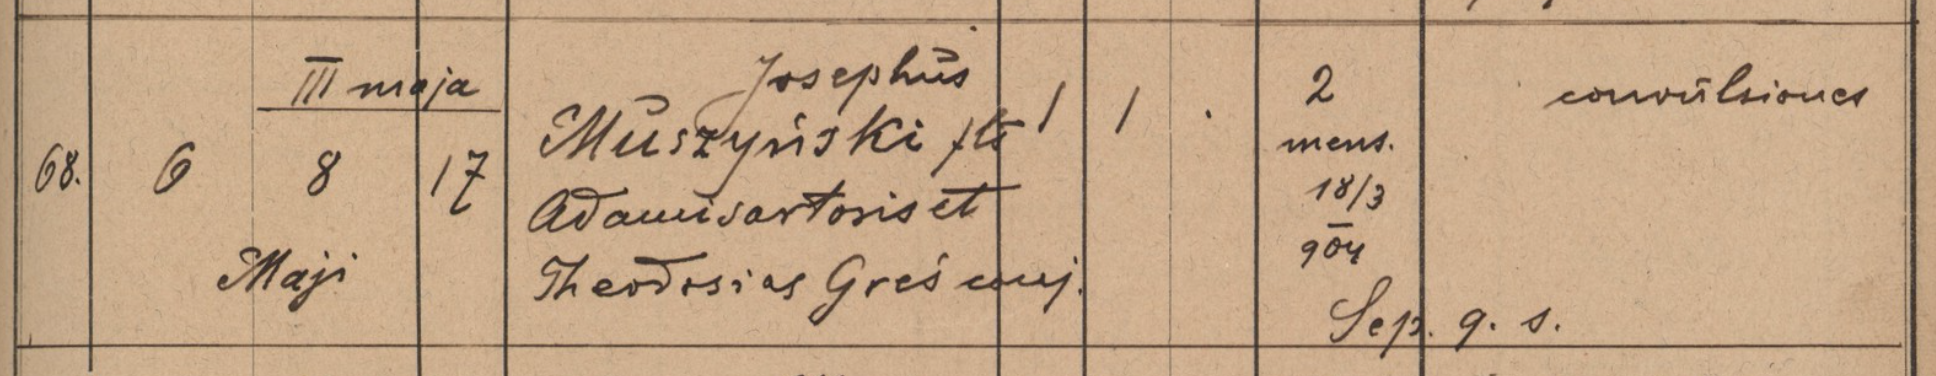 III maja
68. 6 8 17
Maji
Josephus
Muszyński fls
Adami sartoris et
Theodosiae Greś conj.
1 1 .
2
mens.
18/3
904
convulsiones
Sep. q. s.